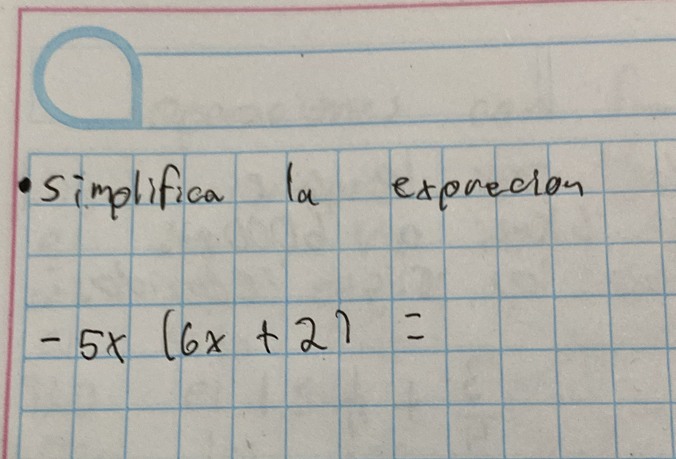 • simplifica la exprecion
- 5x (6x + 2) =